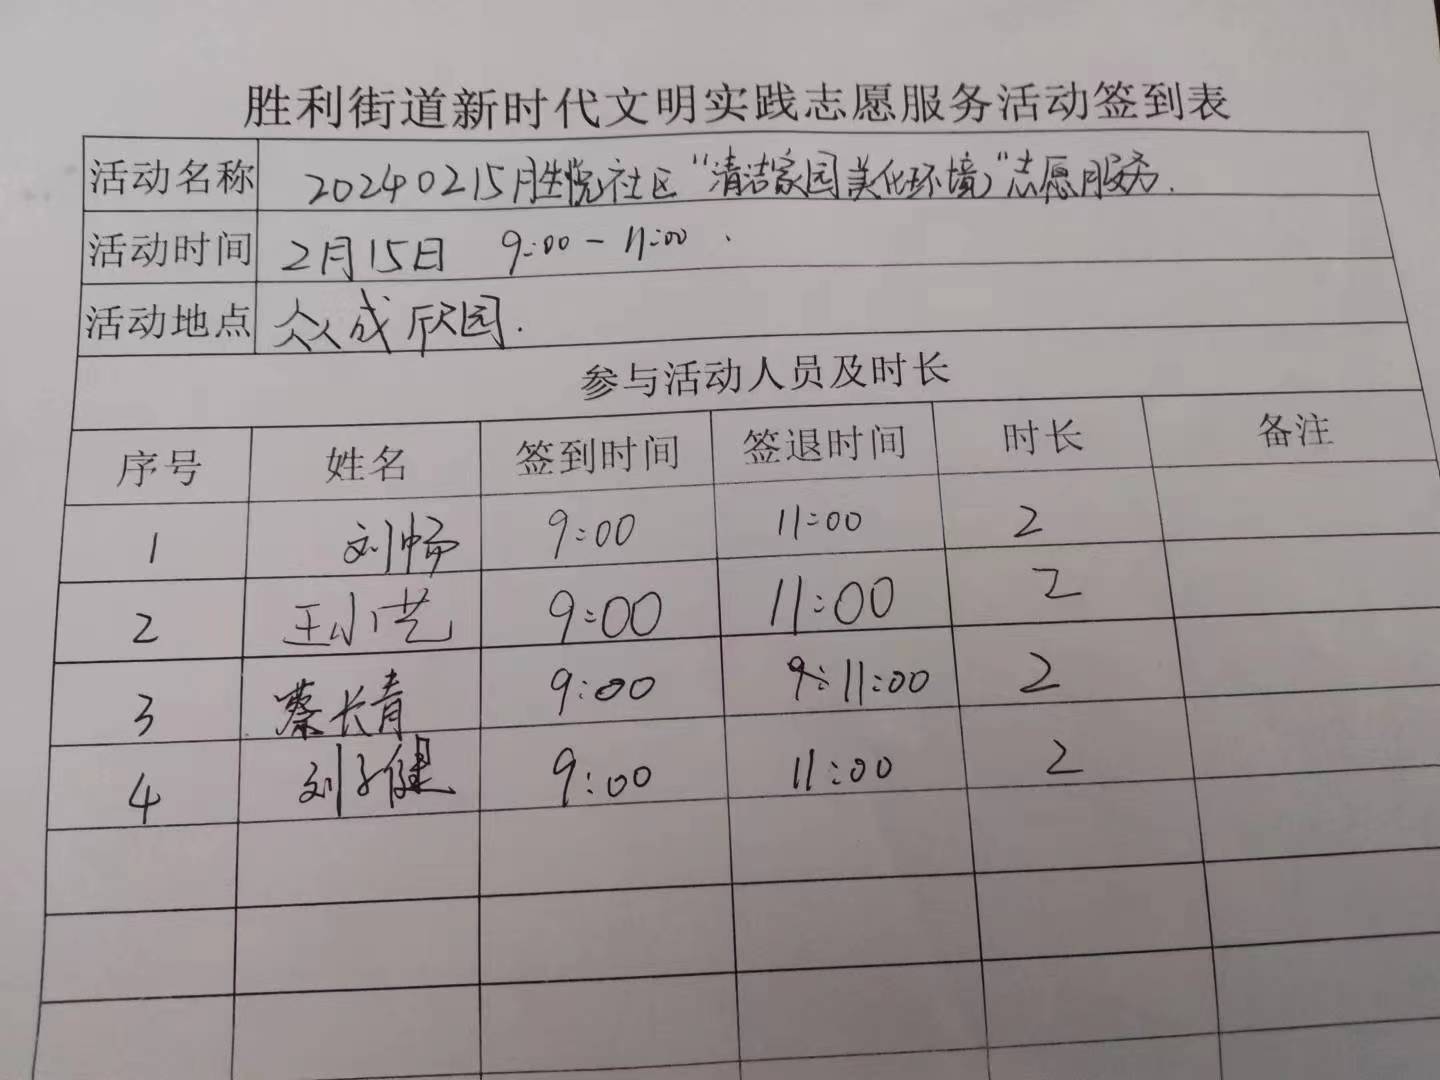 胜利街道新时代文明实践志愿服务活动签到表
活动名称 20240215胜悦社区"清洁家园美化环境"志愿服务.
活动时间 2月15日 9:00-11:00.
活动地点 众成欣园.
参与活动人员及时长
序号 姓名 签到时间 签退时间 时长 备注
1 刘畅 9:00 11:00 2
2 王小艺 9:00 11:00 2
3 蔡长青 9:00 9:11:00 2
4 刘子健 9:00 11:00 2